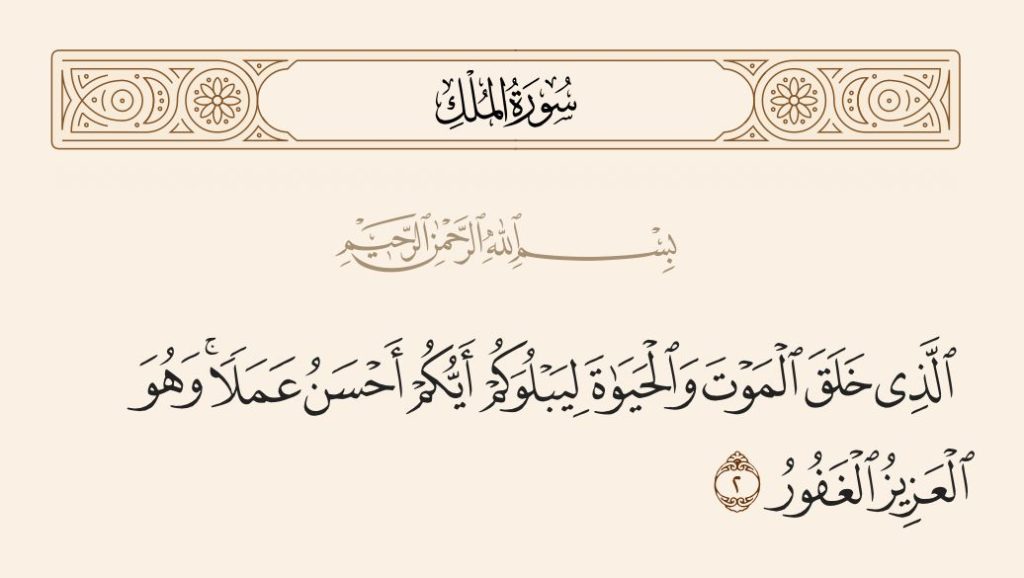 سُورَةُ الْمُلْكِ
بِسْمِ ٱللَّهِ ٱلرَّحْمَٰنِ ٱلرَّحِيمِ
ٱلَّذِى خَلَقَ ٱلْمَوْتَ وَٱلْحَيَوٰةَ لِيَبْلُوَكُمْ أَيُّكُمْ أَحْسَنُ عَمَلًاۚ وَهُوَ
ٱلْعَزِيزُ ٱلْغَفُورُ ٢